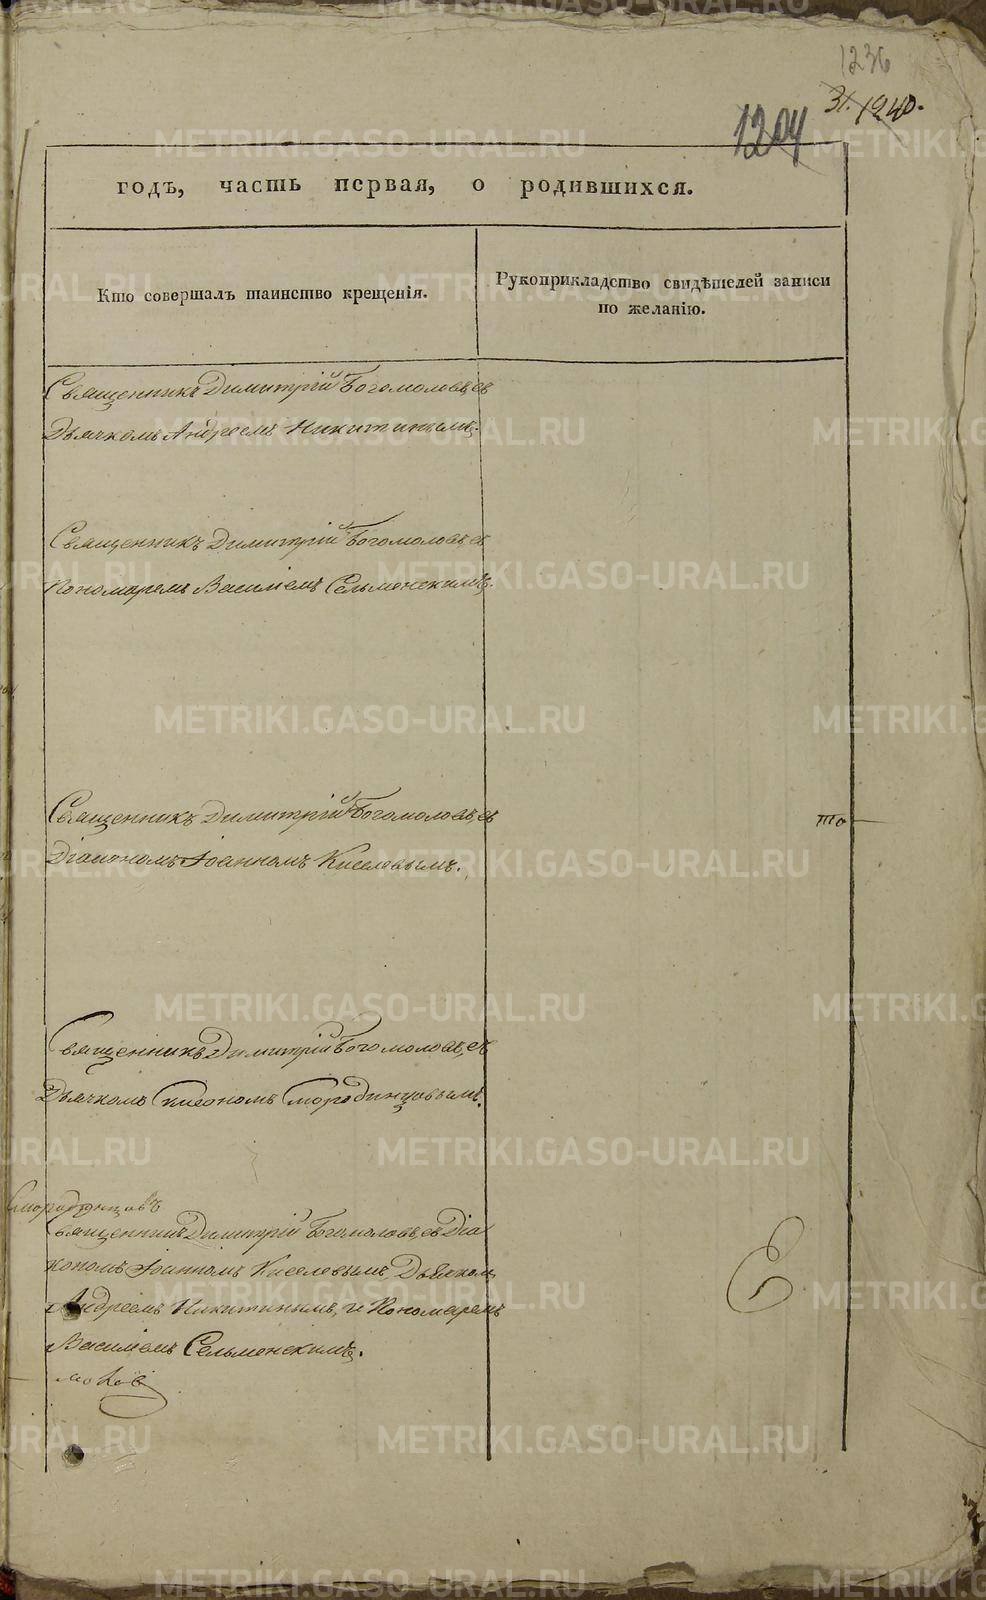 1236
31. 1240.
1204
годъ, часть первая, о родившихся.
Кто совершалъ таинство крещенія.
Рукоприкладство свидѣтелей записи
по желанію.
Священникъ Димитрій Богомоловъ, съ
Дьячкомъ Андреемъ Никитинымъ.
Священникъ Димитрій Богомоловъ, съ
Пономаремъ Василіемъ Сельменскимъ.
Священникъ Димитрій Богомоловъ, съ
Діакономъ Іоанномъ Киселевымъ.
то
Священникъ Димитрій Богомоловъ, съ
Дьячкомъ Смородинцовымъ.
Смородинцовъ
Священникъ Димитрій Богомоловъ, съ Діа
кономъ Іоанномъ Киселевымъ, Дьячком
Андреемъ Никитинымъ, и Пономаремъ
Василіемъ Сельменскимъ.
METRIKI.GASO-URAL.RU